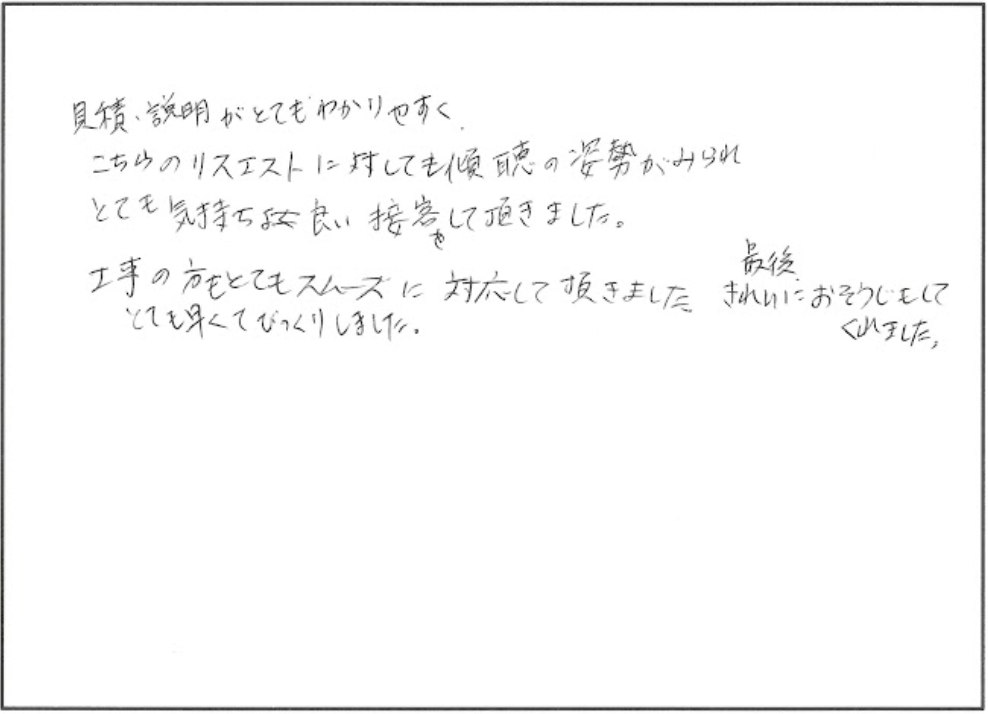 見積・説明がとてもわかりやすく、
こちらのリスエストに対しても傾聴の姿勢がみられ
とても気持ち良い接客をして頂きました。
工事の方もとてもスムーズに対応して頂きました。
とても早くてびっくりしました。
最後、
きれいにおそうじもして
くれました。